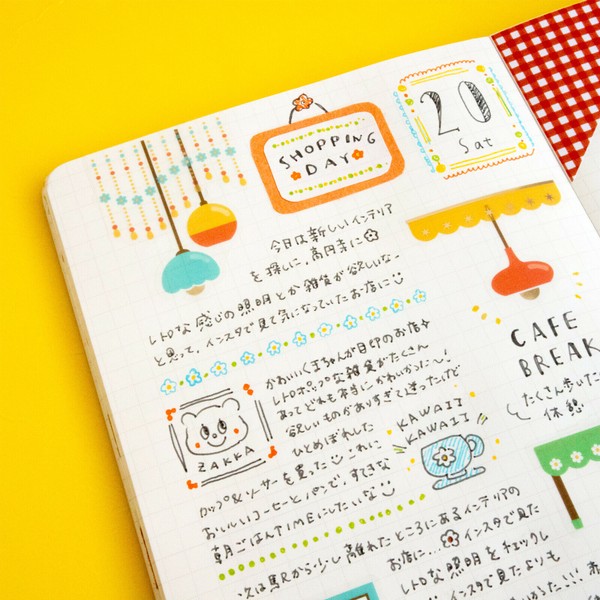 SHOPPING
DAY
20
Sat
今日は新しいインテリア
を探しに、高円寺に
レトロな感じの照明とか雑貨が欲しいなー
と思って、インスタで見て気になっていたお店に
かわいいくまちゃんが目印のお店
レトロポップな雑貨がたくさん
あってどれも本当にかわいかったー!
欲しいものがありすぎて迷ったけど
ひとめぼれした
カップ&ソーサーを買った これに
おいしいコーヒーとパンで、すてきな
朝ごはんTIMEにしたいな
ZAKKA
KAWAII
KAWAII
CAFE
BREAK
たくさん歩いた
休憩
次は駅から少し離れたところにあるインテリアの
お店に… インスタで見た
レトロな照明をチェックし
インスタで見たよりも